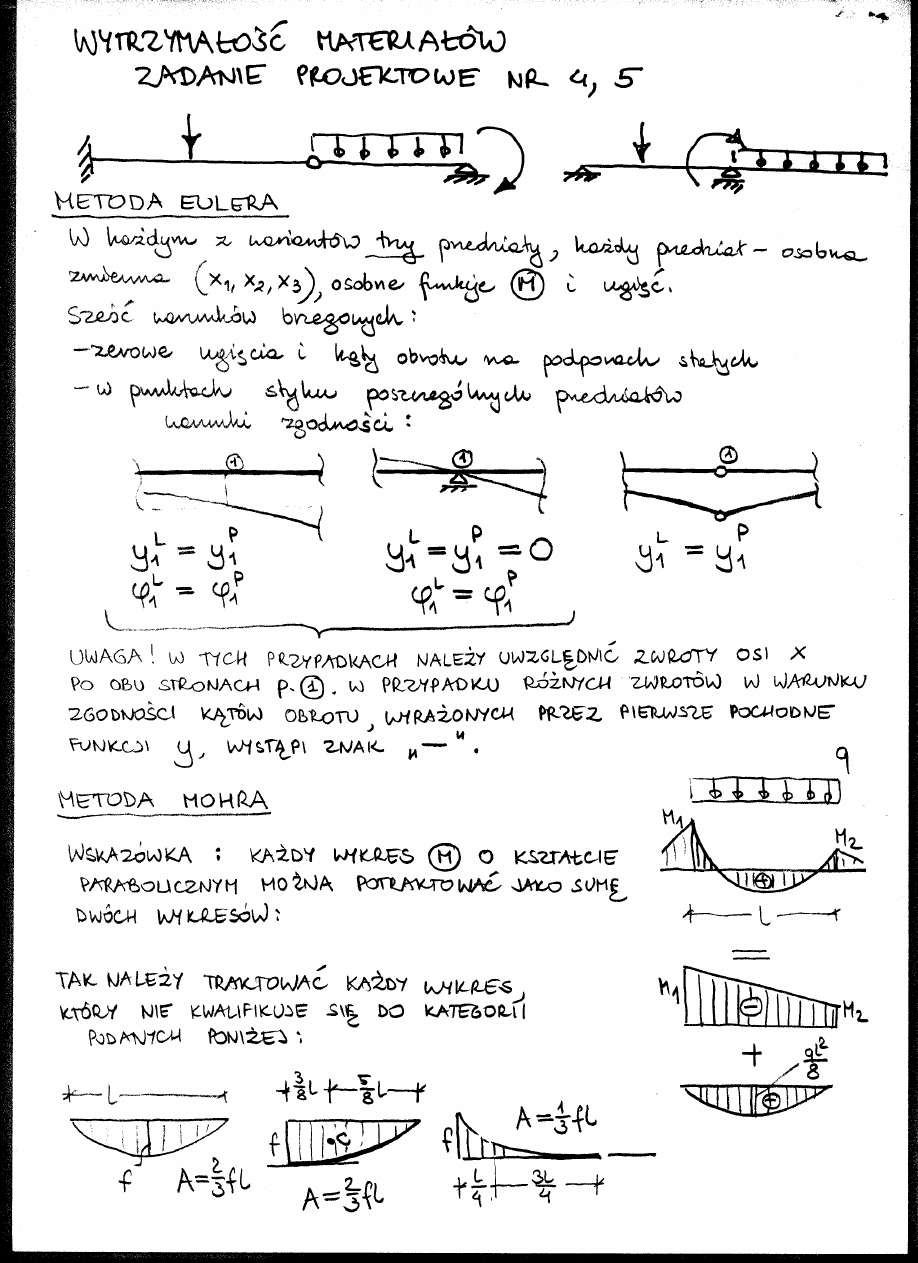 WYTRZYMAŁOŚĆ MATERIAŁÓW
ZADANIE PROJEKTOWE NR 4, 5
METODA EULERA
W każdym z wariantów trzy przedziały, każdy przedział – osobna
zmienna (x₁, x₂, x₃), osobne funkcje Ⓜ i ugięć.
Sześć warunków brzegowych:
– zerowe ugięcia i kąty obrotu na podporach stałych
– w punktach styku poszczególnych przedziałów
warunki zgodności:
① ① ①
y₁ᴸ = y₁ᴾ y₁ᴸ = y₁ᴾ = 0 y₁ᴸ = y₁ᴾ
φ₁ᴸ = φ₁ᴾ φ₁ᴸ = φ₁ᴾ
UWAGA! W TYCH PRZYPADKACH NALEŻY UWZGLĘDNIĆ ZWROTY OSI X
PO OBU STRONACH P. ①. W PRZYPADKU RÓŻNYCH ZWROTÓW W WARUNKU
ZGODNOŚCI KĄTÓW OBROTU, WYRAŻONYCH PRZEZ PIERWSZE POCHODNE
FUNKCJI y, WYSTĄPI ZNAK „—".
q
METODA MOHRA
M₁ M₂
WSKAZÓWKA : KAŻDY WYKRES Ⓜ O KSZTAŁCIE
PARABOLICZNYM MOŻNA POTRAKTOWAĆ JAKO SUMĘ
DWÓCH WYKRESÓW:
⊕
l
=
TAK NALEŻY TRAKTOWAĆ KAŻDY WYKRES,
KTÓRY NIE KWALIFIKUJE SIĘ DO KATEGORII
PODANYCH PONIŻEJ:
M₁ ⊖ M₂
+
ql²/8
⊕
l 3/8 l 5/8 l
f •C f A = 1/3 fl
f A = 2/3 fl A = 2/3 fl
L/4 3L/4